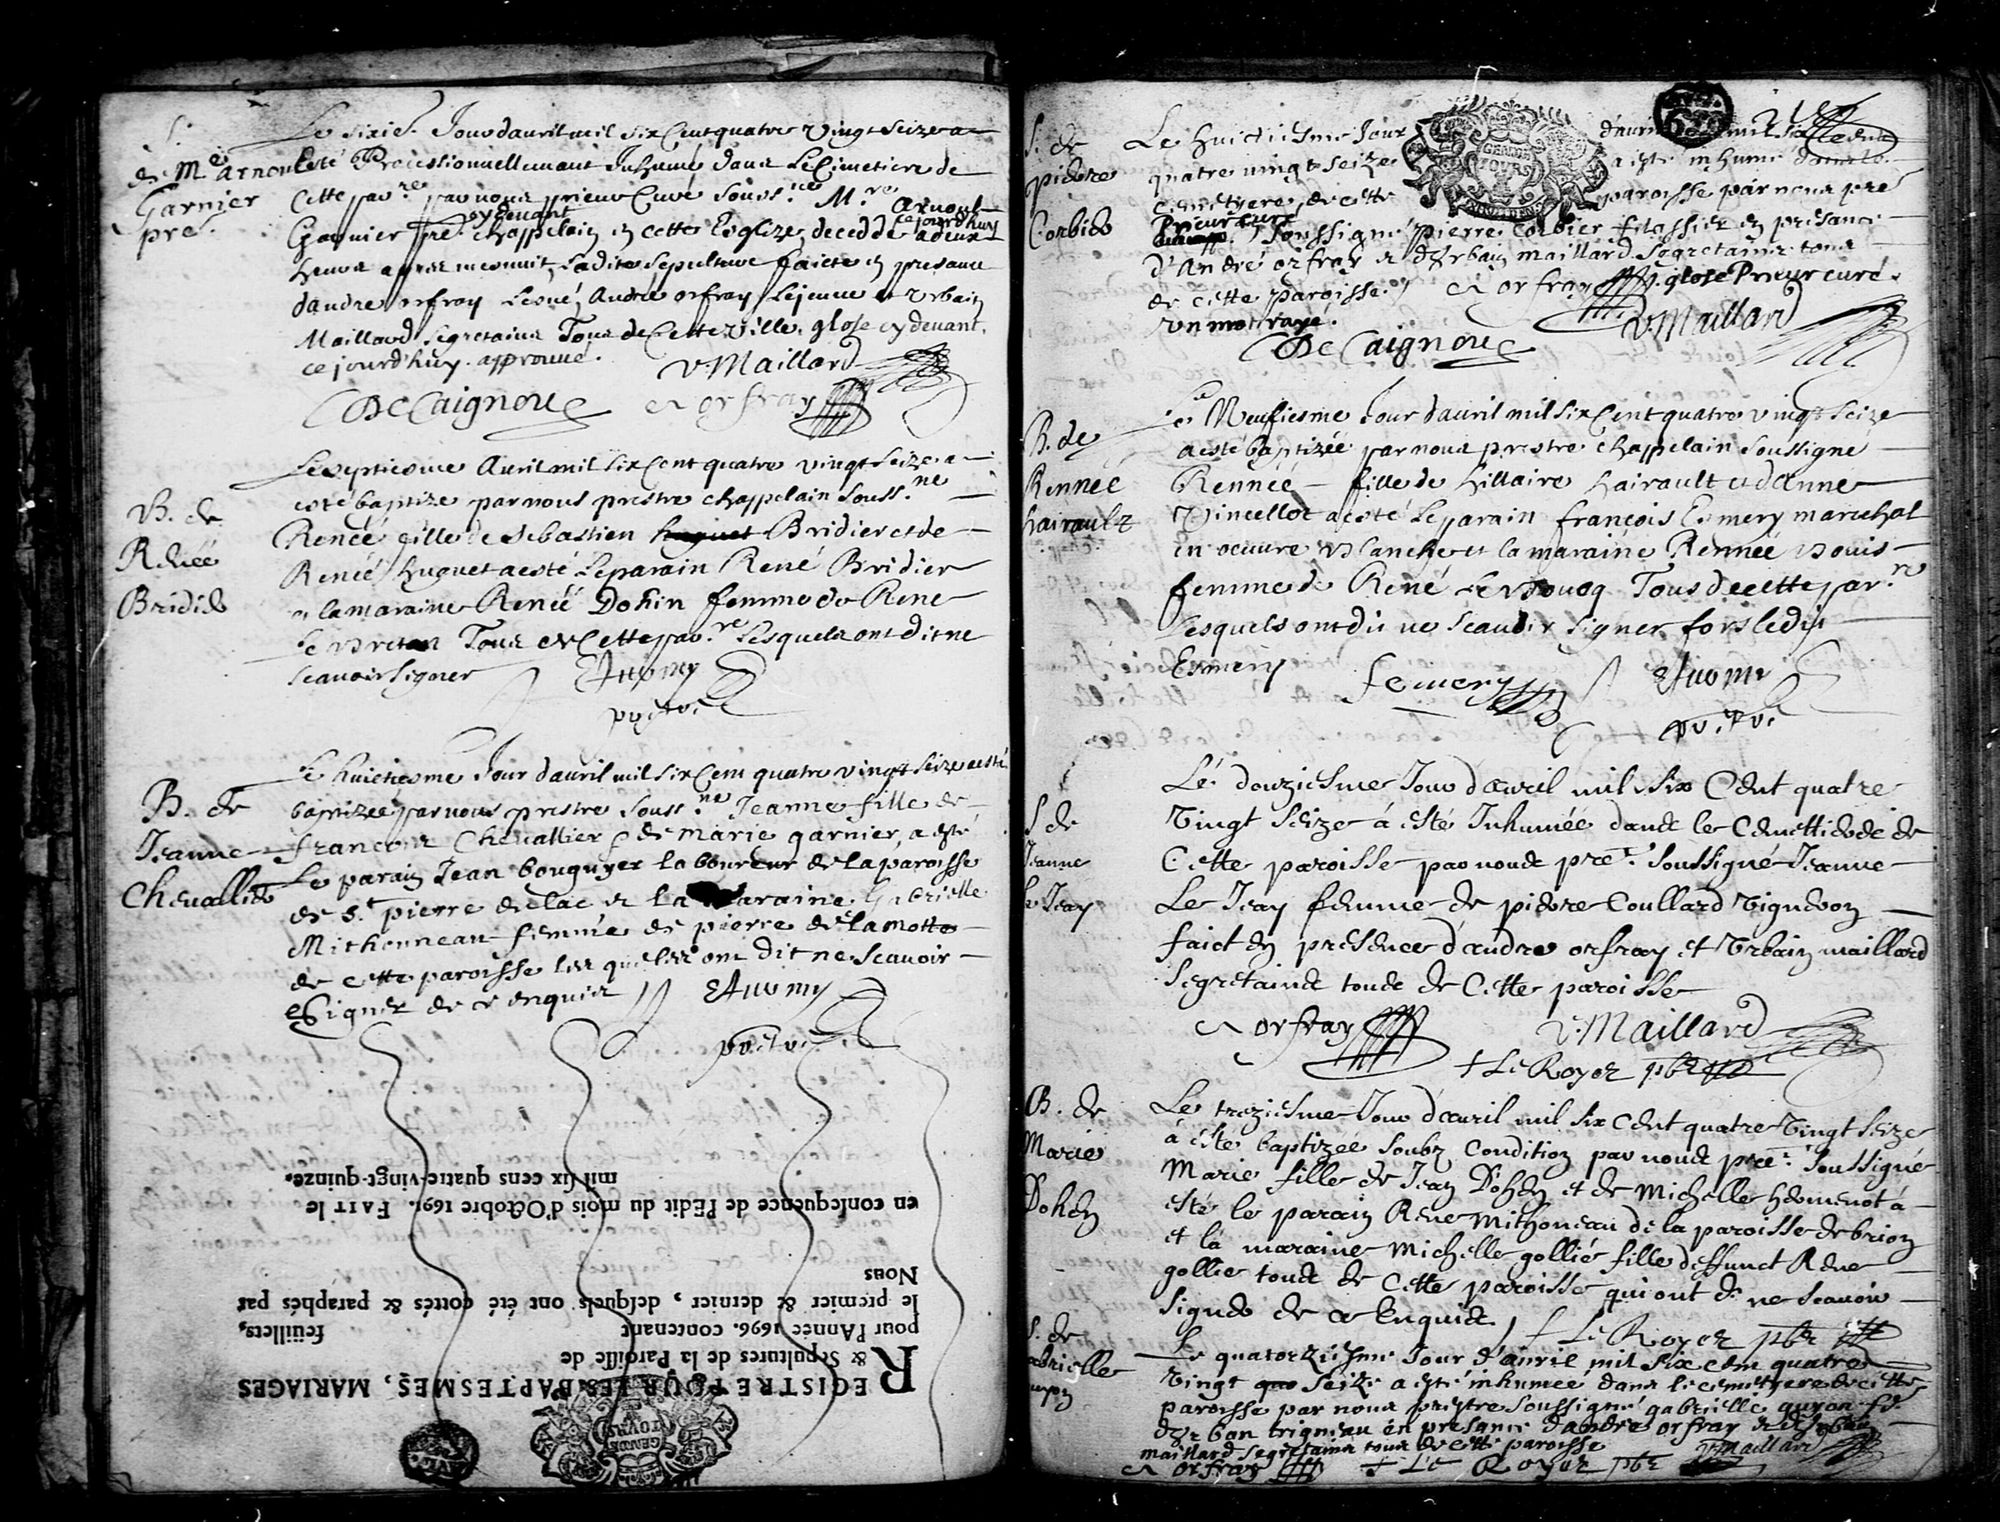 S.
de Me arnoul
Garnier
pre.
Le sixie. Jour d'avril mil six Cent quatre vingt seize a
esté Processionnellemant Inhumé dans Le Cimetiere de
Cette par.re par nous prieur Curé souss.né M.re Arnoul
Garnier Pre. cy devant chappelain en cette Eglize decedé ce jourd'huy a deux
heures apres mesnuit, sadite sepulture faicte en presance
dandre orfray Lesné, André orfray Lejeune et Urbain
Maillard segretains Tous de Cette Ville. glose cy devant.
ce jourd'huy. approuvé.
V. Maillard
De Caignou
A orfray
B. de
Renée
Bridier
Le septiesme Avril mil six Cent quatre vingt seize a
esté baptize par nous prestre chappelain souss.né
Renée fille de sebastien huguet Bridier et de
Renée huguet a esté Le parain René Bridier
et la maraine Renée Dohin femme de Rene
Le Breton Tous de Cette par.re Lesquels ont dit ne
scavoir signer
prestre
B. de
Jeanne
Chevallier
Le huictiesme Jour d'avril mil six Cent quatre vingt seize a esté
baptizée par nous prestre souss.né Jeanne fille de
francois Chevallier & de marie garnier, a esté
Le parain Jean bouguyer laboureur de la paroisse
de S.t pierre de lac et la maraine Gabrielle
Mithonneau femme de pierre de la motte
de cette paroisse lesquels ont dit ne scavoir
Signer de ce enquier
prestre
REGISTRE POUR LES BAPTESMES, MARIAGES
& Sepultures de la Paroisse de
pour l'Année 1696. contenant feüillets,
le premier & dernier, desquels ont été cottés & paraphés par
Nous
en consequence de l'Edit du mois d'Octobre 1691. FAIT le
mil six cens quatre-vingt-quinze.
GENERAL
TOURS
S. de
pierre
Corbier
Le huictiesme Jour d'avril mil six cent
quatre vingt seize a esté inhumé dans le
cimetyere de cette paroisse par nous pre
Prieur curé soussigné pierre Corbier filassier en presance
d'André orfray et d'Urbain maillard segretains tous
de cette paroisse A orfray glose Prieur curé.
Un mot rayé.
V. Maillard
De Caignou
GENERAL
TOURS
B. de
Rennée
hairault
Le Neufiesme Jour d'avril mil six Cent quatre vingt seize
a esté baptizée par nous prestre chappelain soussigne
Rennée fille de hillaire hairault et d'Anne
Vincellot a esté Le parain françois Esmery marechal
en oeuvre blanche et la maraine Rennée
femme de René Tous de cette par.re
Lesquels ont dit ne scavoir signer fors ledit
Esmery
f emery
prestre
S de
Jeanne
le Jeay
Le douziesme Jour d'avril mil six Cent quatre
Vingt seize à esté Inhumée dans le Cemettiere de
Cette paroisse par nous pre. soussigné Jeanne
Le Jeay femme de pierre Coullard Vigneron
faict en presence d'andre orfray et Urbain maillard
segretains tous de Cette paroisse
A orfray
V. Maillard
+ Le Royer pbr
B. de
Marie
Dohen
Le treziesme Jour d'avril mil six Cent quatre Vingt seize
à esté baptizée soubz Condition par nous pre. soussigné
Marie fille de Jean Dohen et de Michelle hemenot à
esté le parain Rene Mithoneau de la paroisse de brion
et la maraine Michelle gollié fille deffunct Rene
gollie tous de Cette paroisse qui ont dt ne scavoir
signer de ce Enquis
+ Le Royer pbr
S. de
gabrielle
guyon
Le quatorziesme Jour d'avril mil six cent quatre
vingt seize a esté inhumeé dans le cemetyere de cette
paroisse par nous prestre soussigné gabrielle guyon fe
d'Urban trigneau en presance d'andre orfray et d'Urban
maillard segretains tous de cette paroisse
V. Maillard
A orfray
+ Le Royer pbr